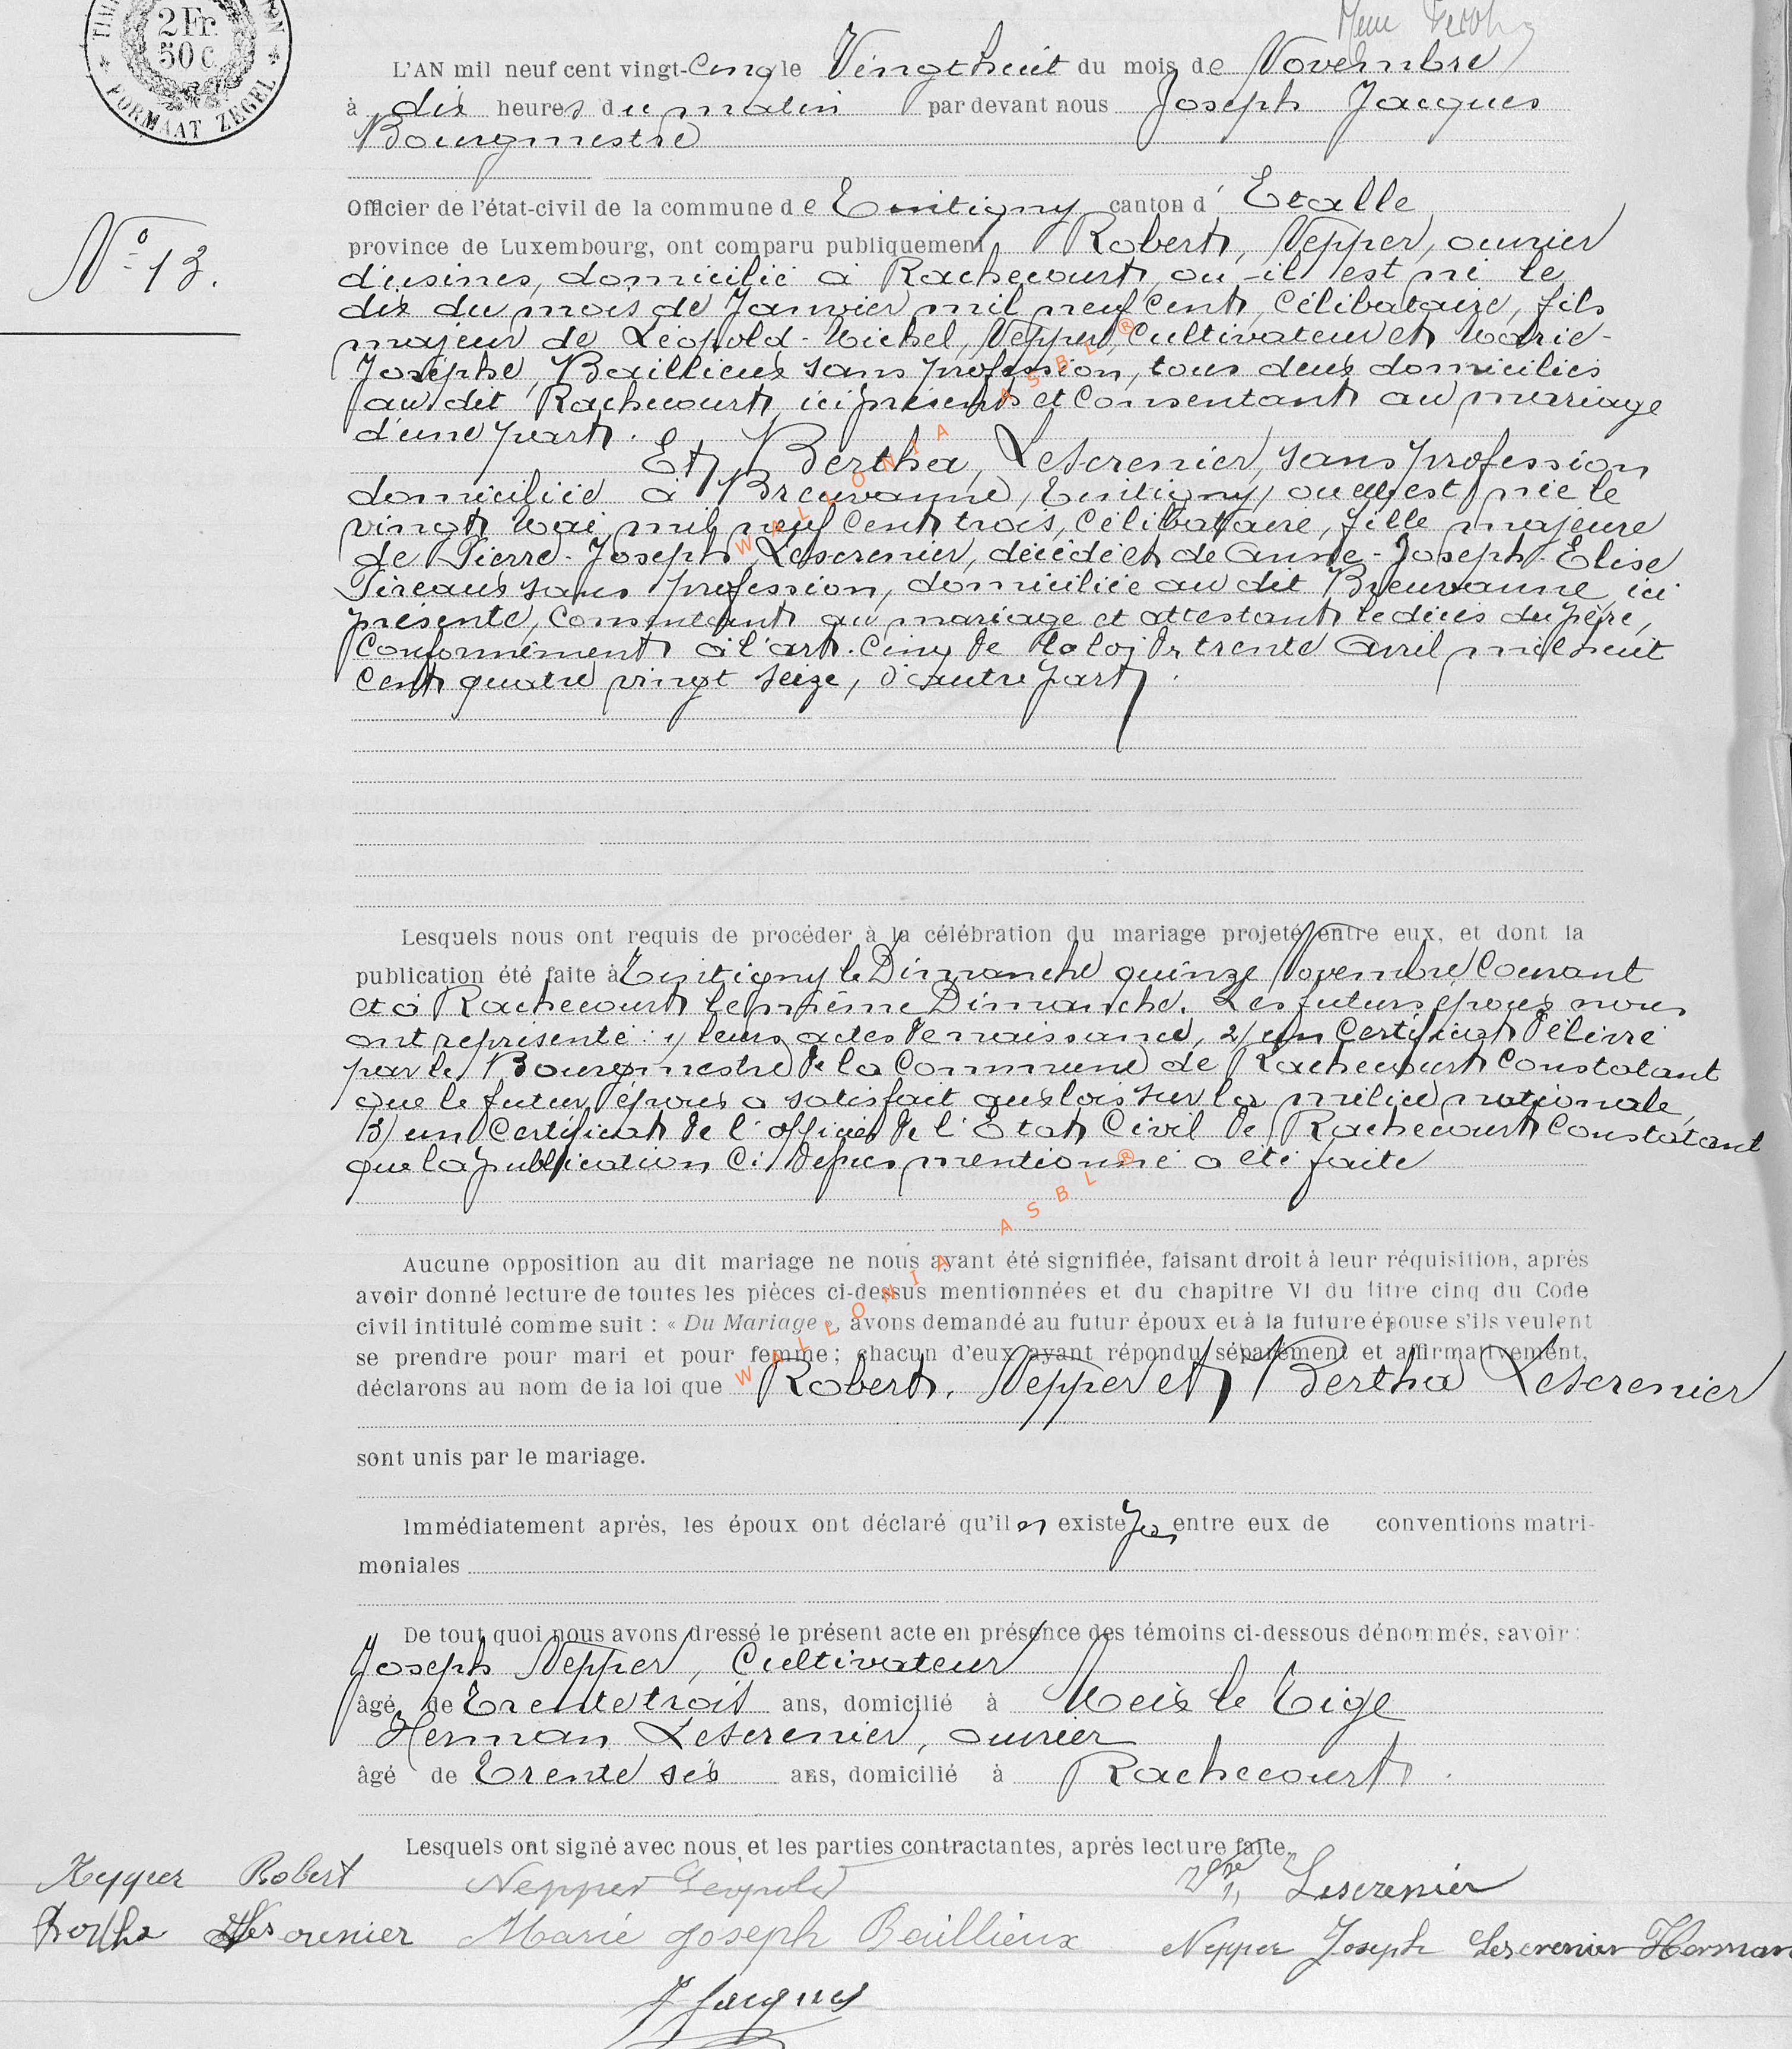 2 Fr.
50 c
FORMAAT ZEGEL
L'AN mil neuf cent vingt-Cinq le Vingthuit du mois de Novembre
à dix heures du matin par devant nous Joseph Jacques
Bourgmestre
Officier de l'état-civil de la commune de Tintigny canton d' Etalle
N° 13.
province de Luxembourg, ont comparu publiquement Robert, Nepper, ouvrier
d'usines, domicilié à Rachecourt, ou il est né le
dix du mois de Janvier mil neuf cent, Célibataire, fils
majeur de Léopold-Michel, Nepper, Cultivateur et Marie-
Josèphe, Baillieux sans profession, tous deux domiciliés
au dit Rachecourt, ici présents et Consentant au marriage
d'une part.
Et Bertha, Lescrenier, sans profession
domiciliée à Breuvanne, Tintigny, ou elle est née le
vingt Mai mil neuf Cent trois, Célibataire, fille majeure
de Pierre-Joseph Lescrenier, décédé et de Anne-Joseph-Elise
Pireaux sans profession, domiciliée au dit Breuvanne, ici
présente, Consentant au mariage et attestant le décès du père,
Conformément à l'art. Cinq de la loi du trente Avril mil huit
Cent quatre vingt seize, d'autre part.
Lesquels nous ont requis de procéder à la célébration du mariage projeté entre eux, et dont la
publication été faite à Tintigny le Dimanche quinze Novembre Courant
et à Rachecourt le même Dimanche. Les futurs époux nous
ont représenté : 1/ leurs actes de naissance, 2/ un Certificat délivré
par le Bourgmestre de la Commune de Rachecourt Constatant
que le futur époux a satisfait aux lois sur la milice nationale,
3/ un Certificat de l'officier de l'Etat Civil de Rachecourt Constatant
que la publication Ci dessus mentionné a été faite
Aucune opposition au dit mariage ne nous ayant été signifiée, faisant droit à leur réquisition, après
avoir donné lecture de toutes les pièces ci-dessus mentionnées et du chapitre VI du titre cinq du Code
civil intitulé comme suit : « Du Mariage », avons demandé au futur époux et à la future épouse s'ils veulent
se prendre pour mari et pour femme; chacun d'eux ayant répondu séparément et affirmativement,
déclarons au nom de la loi que Robert, Nepper et Bertha Lescrenier
sont unis par le mariage.
Immédiatement après, les époux ont déclaré qu'il n existe pas entre eux de conventions matri-
moniales
De tout quoi nous avons dressé le présent acte en présence des témoins ci-dessous dénommés, savoir :
Joseph Nepper, Cultivateur
âgé de Trente trois ans, domicilié à Meix le Tige
Herman Lescrenier, ouvrier
âgé de Trente six ans, domicilié à Rachecourt.
Lesquels ont signé avec nous et les parties contractantes, après lecture faite.
Nepper Robert Nepper Léopold Vve Lescrenier
Bertha Lescrenier Marie Joseph Baillieux Nepper Joseph Lescrenier Herman
J Jacques
WALLONIA ASBL ®
WALLONIA ASBL ®